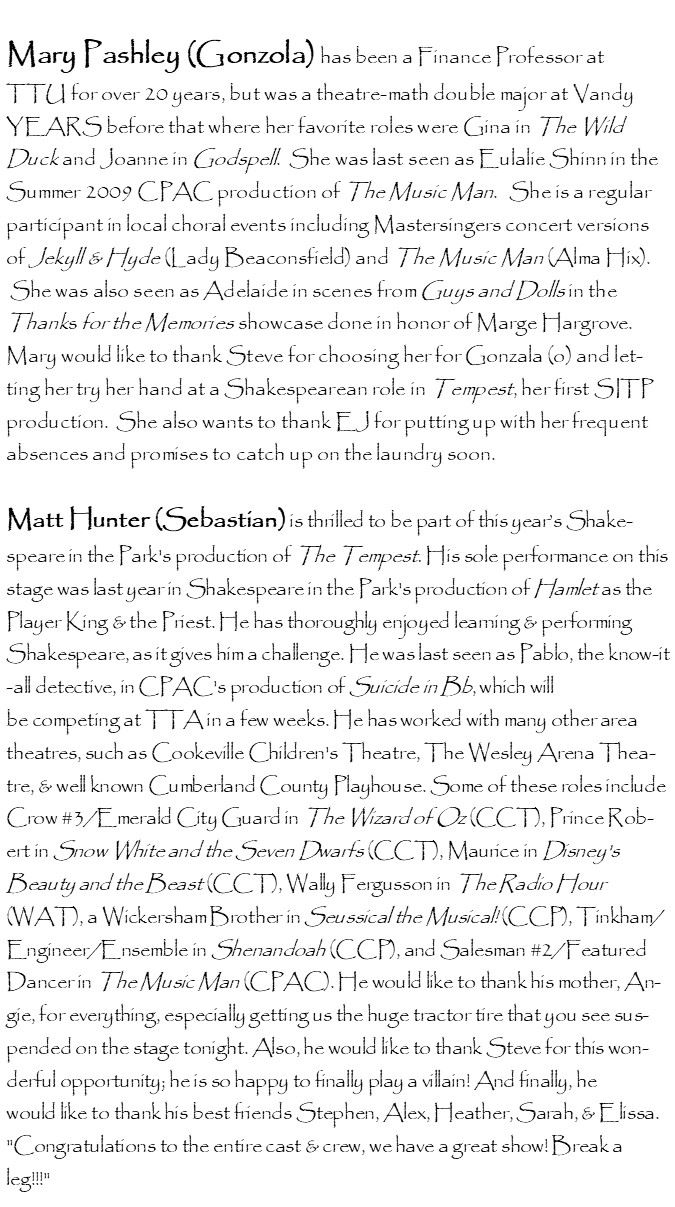 Mary Pashley (Gonzola) has been a Finance Professor at
TTU for over 20 years, but was a theatre-math double major at Vandy
YEARS before that where her favorite roles were Gina in The Wild
Duck and Joanne in Godspell. She was last seen as Eulalie Shinn in the
Summer 2009 CPAC production of The Music Man. She is a regular
participant in local choral events including Mastersingers concert versions
of Jekyll & Hyde (Lady Beaconsfield) and The Music Man (Alma Hix).
She was also seen as Adelaide in scenes from Guys and Dolls in the
Thanks for the Memories showcase done in honor of Marge Hargrove.
Mary would like to thank Steve for choosing her for Gonzala (o) and let-
ting her try her hand at a Shakespearean role in Tempest, her first SITP
production. She also wants to thank EJ for putting up with her frequent
absences and promises to catch up on the laundry soon.
Matt Hunter (Sebastian) is thrilled to be part of this year's Shake-
speare in the Park's production of The Tempest. His sole performance on this
stage was last year in Shakespeare in the Park's production of Hamlet as the
Player King & the Priest. He has thoroughly enjoyed learning & performing
Shakespeare, as it gives him a challenge. He was last seen as Pablo, the know-it
-all detective, in CPAC's production of Suicide in Bb, which will
be competing at TTA in a few weeks. He has worked with many other area
theatres, such as Cookeville Children's Theatre, The Wesley Arena Thea-
tre, & well known Cumberland County Playhouse. Some of these roles include
Crow #3/Emerald City Guard in The Wizard of Oz (CCT), Prince Rob-
ert in Snow White and the Seven Dwarfs (CCT), Maurice in Disney's
Beauty and the Beast (CCT), Wally Fergusson in The Radio Hour
(WAT), a Wickersham Brother in Seussical the Musical! (CCP), Tinkham/
Engineer/Ensemble in Shenandoah (CCP), and Salesman #2/Featured
Dancer in The Music Man (CPAC). He would like to thank his mother, An-
gie, for everything, especially getting us the huge tractor tire that you see sus-
pended on the stage tonight. Also, he would like to thank Steve for this won-
derful opportunity; he is so happy to finally play a villain! And finally, he
would like to thank his best friends Stephen, Alex, Heather, Sarah, & Elissa.
"Congratulations to the entire cast & crew, we have a great show! Break a
leg!!!"